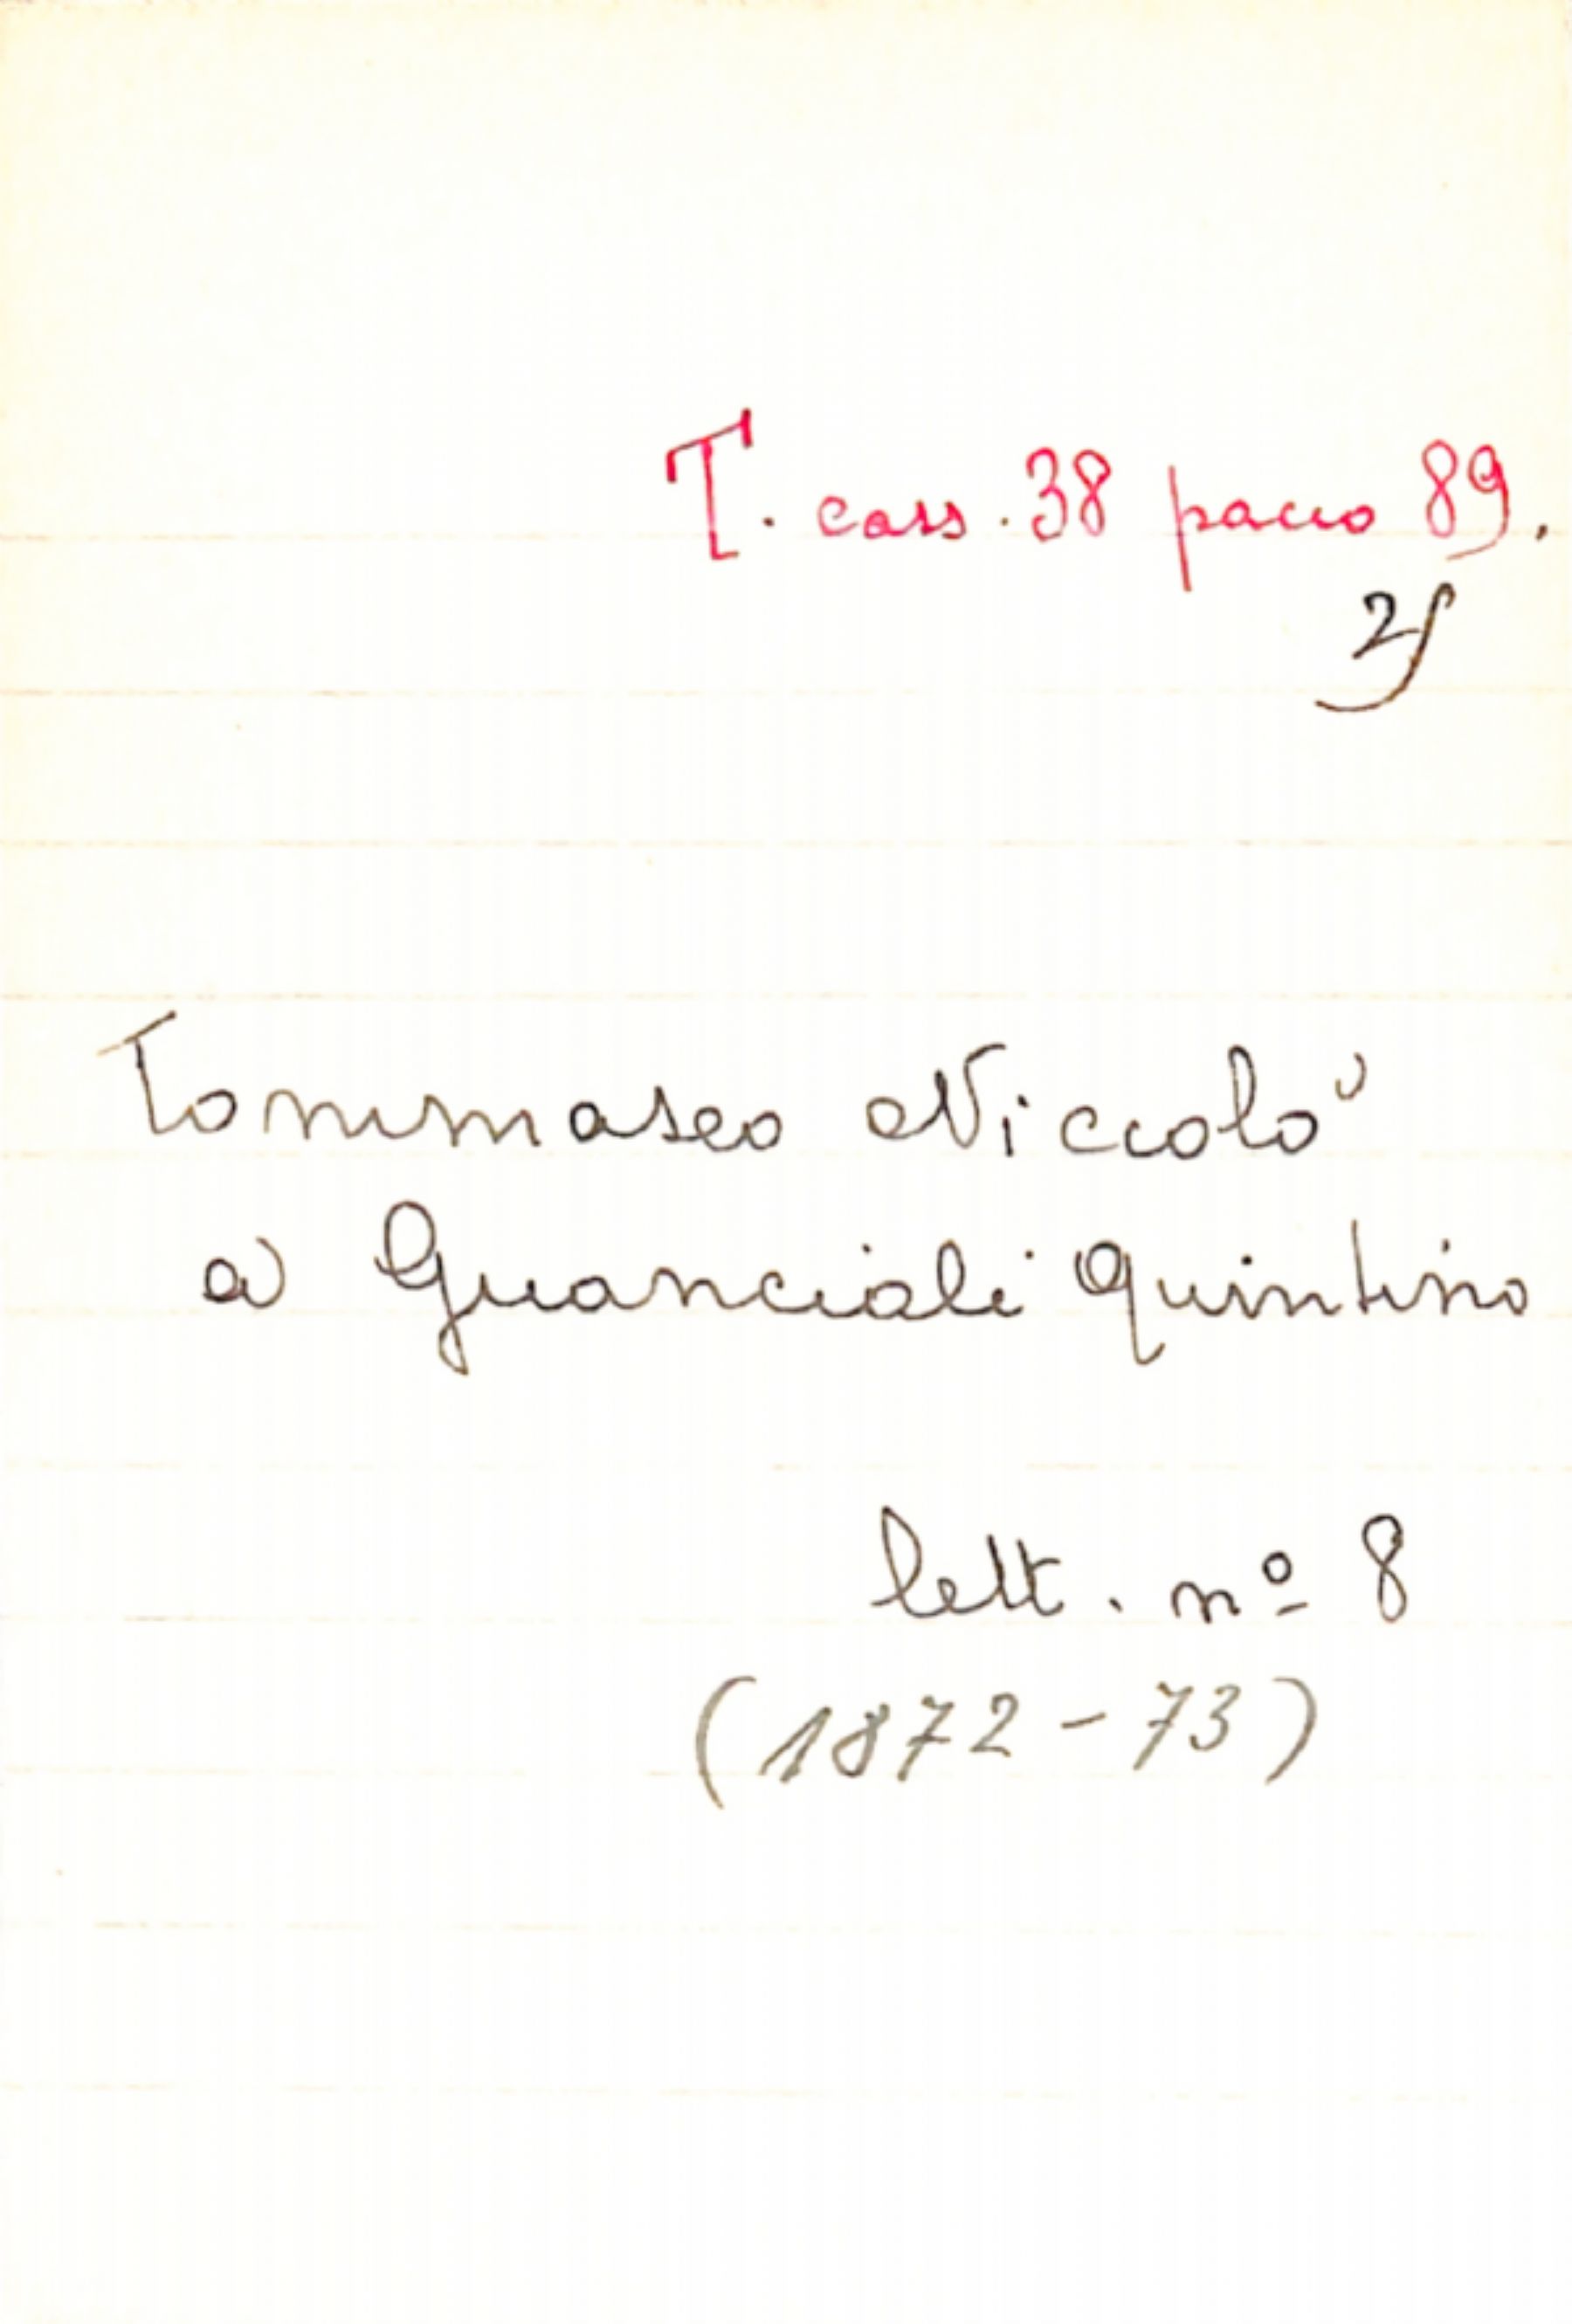 T. cass. 38 pacco 89.
2)
Tommaseo Niccolò
a Guanciali Quintino
lett. nº 8
(1872-73)